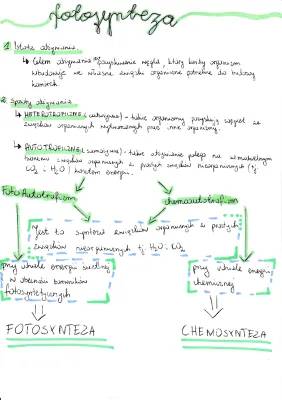 fotosynteza
1 Istota odżywiania.
↳ Celem odżywiania jest pozyskiwanie węgla, który każdy organizm
wbudowuje we własne związki organiczne potrzebne do budowy
komórek.
2 Sposoby odżywiania
↳ HETEROTROFICZNE (cudzożywne) - takie organizmy pozyskują węgiel ze
związków organicznych wytworzonych przez inne organizmy.
↳ AUTOTROFICZNE (samożywne) - takie odżywianie polega na samodzielnym
związków organicznych z prostych związków nieorganicznych (np
CO2 i H2O) kosztem energii.
fotoautotrofizm
chemoautotrofizm
Jest to synteza związków organicznych z prostych
związków nieorganicznych np H2O i CO2
przy udziale energii świetlnej
w obecności barwników
fotosyntetycznych
przy udziale energii
chemicznej
FOTOSYNTEZA
CHEMOSYNTEZA